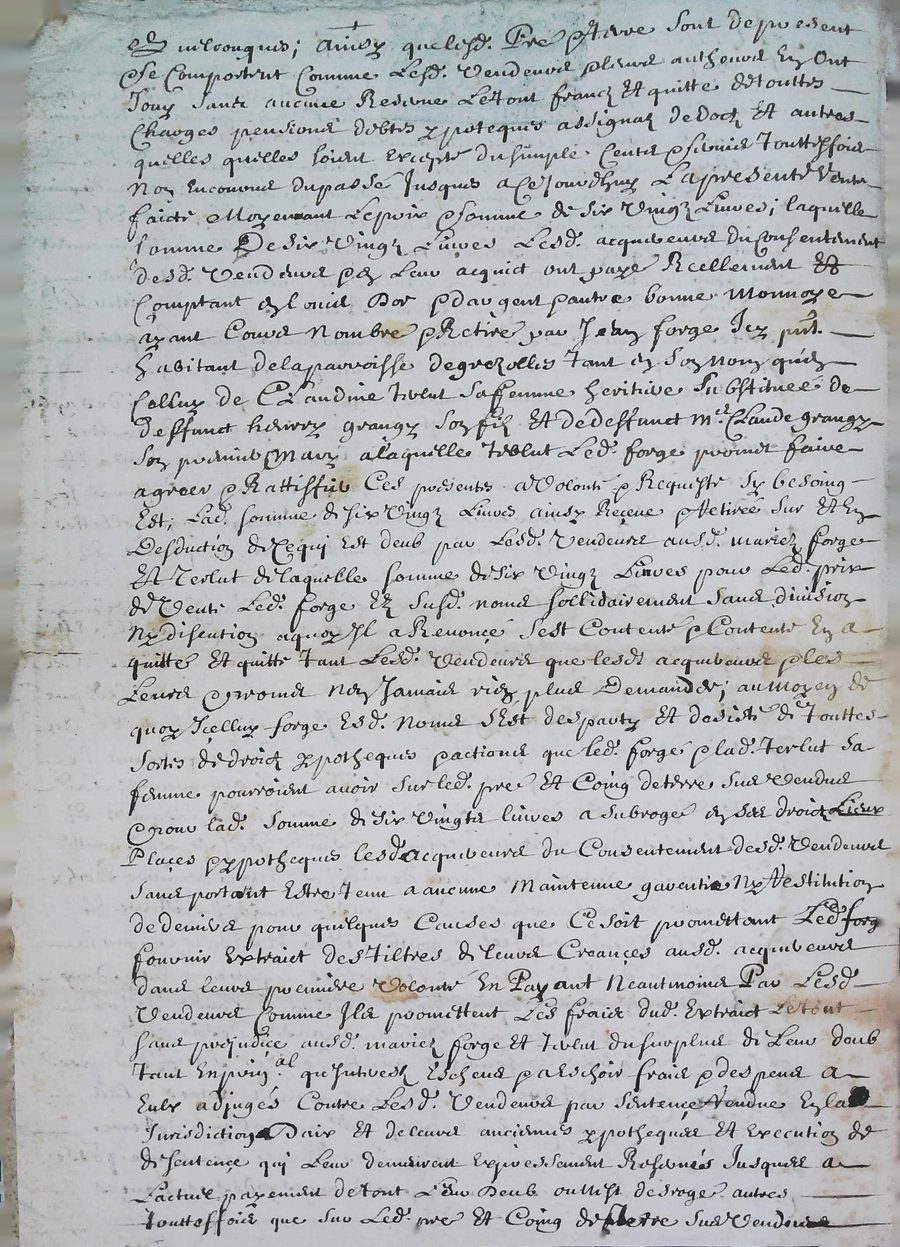 quelconques; ainsy que lesd. Pré & terre sont de present
& se Comportent Comme Lesd. Vendeurs & leurs autheurs En Ont
Jouy sans aucune Reserve Letout franq Et quitte detouttes
Charges pensions debtes ypoteques assignaz dedoct Et autres
quelles quelles soient Excepté dusimple Cens & servis touttefois
Non Encourus dupassé Jusques a Cejourdhuy Lapresente Vente
faicte Moyenant Leprix & somme de six Vingz Livres; laquelle
somme De six Vingz Livres Lesd. acquereurs du Consentement
desd. Vendeurs & en Leur acquict ont payé Reellement Et
Comptant en louis Dor & dargent & autre bonne Monnoye
ayant Cours Nombré & Retiré par Jean forge Icy pnt.
habitant delaparroisse degrezolles tant en son nom qu'en
Celluy de Claudine terlut saffemme heritiere substituee de
deffunct henry grangy son filz Et dedeffunct mre. Claude grangy
son premier Mary alaquelle terlut Led. forge promet faire
agreer & Rattiffier Ces presentes a Volonté & Requeste sy besoing
Est; Lad. somme de six Vingz Livres ainsy Reçeue & Retirée sur Et En
Desduction de Cequi Est deub par Lesd. Vendeurs ausd. mariez forge
Et terlut delaquelle somme de six Vingz Livres pour Led. prix
de Vente Led. forge Ez susd. noms sollidairement sans division
Ny discution aquoy Il a Renoncé s'est Contenté & Contente En a
quitté Et quitte tant Lesd. Vendeurs que lesd acquereurs & les
Leurs & promet N'en Jamais rien plus Demander; aumoyen de
quoy Icelluy forge Esd. Noms s'Est desparty Et desisté de touttes
sortes de droict ypotheques & actions que led. forge & lad. terlut sa
femme pourroient avoir sur led. pré Et Coing deterre sus Vendus
& pour lad. somme de six Vingtz livres a subrogé en ses droictz Lieux
Plaçes & ypotheques lesd. acquereurs du Consentement desd. Vendeurs
sans portant Estre tenu a aucune Maintenue garantie Ny Restitution
dedeniers pour quelques Causes que Cesoit promettant Led. forg
fournir Extraict des tiltres de leurs Creançes ausd. acquereurs
dans leurs premiere Volonté En Payant Neantmoins Par Lesd.
Vendeurs Comme Ils promettent Les fraicts dud. Extraict Letout
sans prejudice ausd. mariez forge Et terlut du surplus de Leur deub
tant En prin.al qu'Interestz Escheus & a Eschoir frais & despens a
Eulx adjugés Contre Lesd. Vendeurs par sentençe Rendue En la
Jurisdiction Daix Et deleurs anciennes ypotheques Et Execution de
de sentence qui Leur demeurent Expressement Reservés Jusques a
Lactuel payement detout Leur Deub desroger autres
touttesfois que sur Led. pré Et Coing de terre sus Vendus